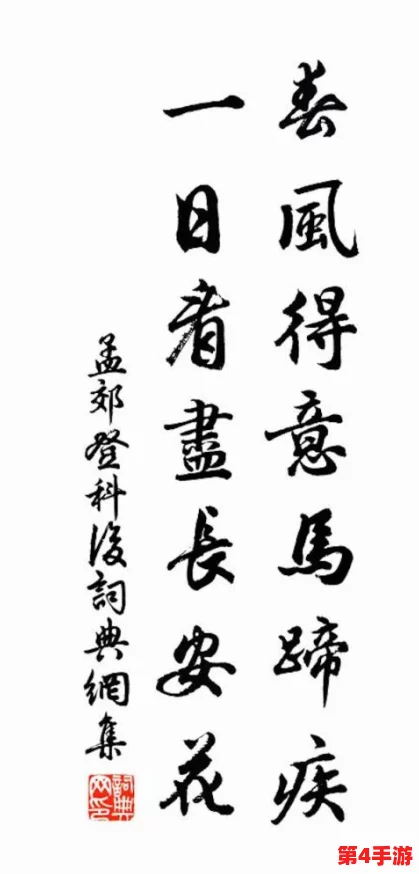 春風得意馬蹄疾
一日看盡長安花
孟郊登科後詞典網集
詞典網印
第4手游